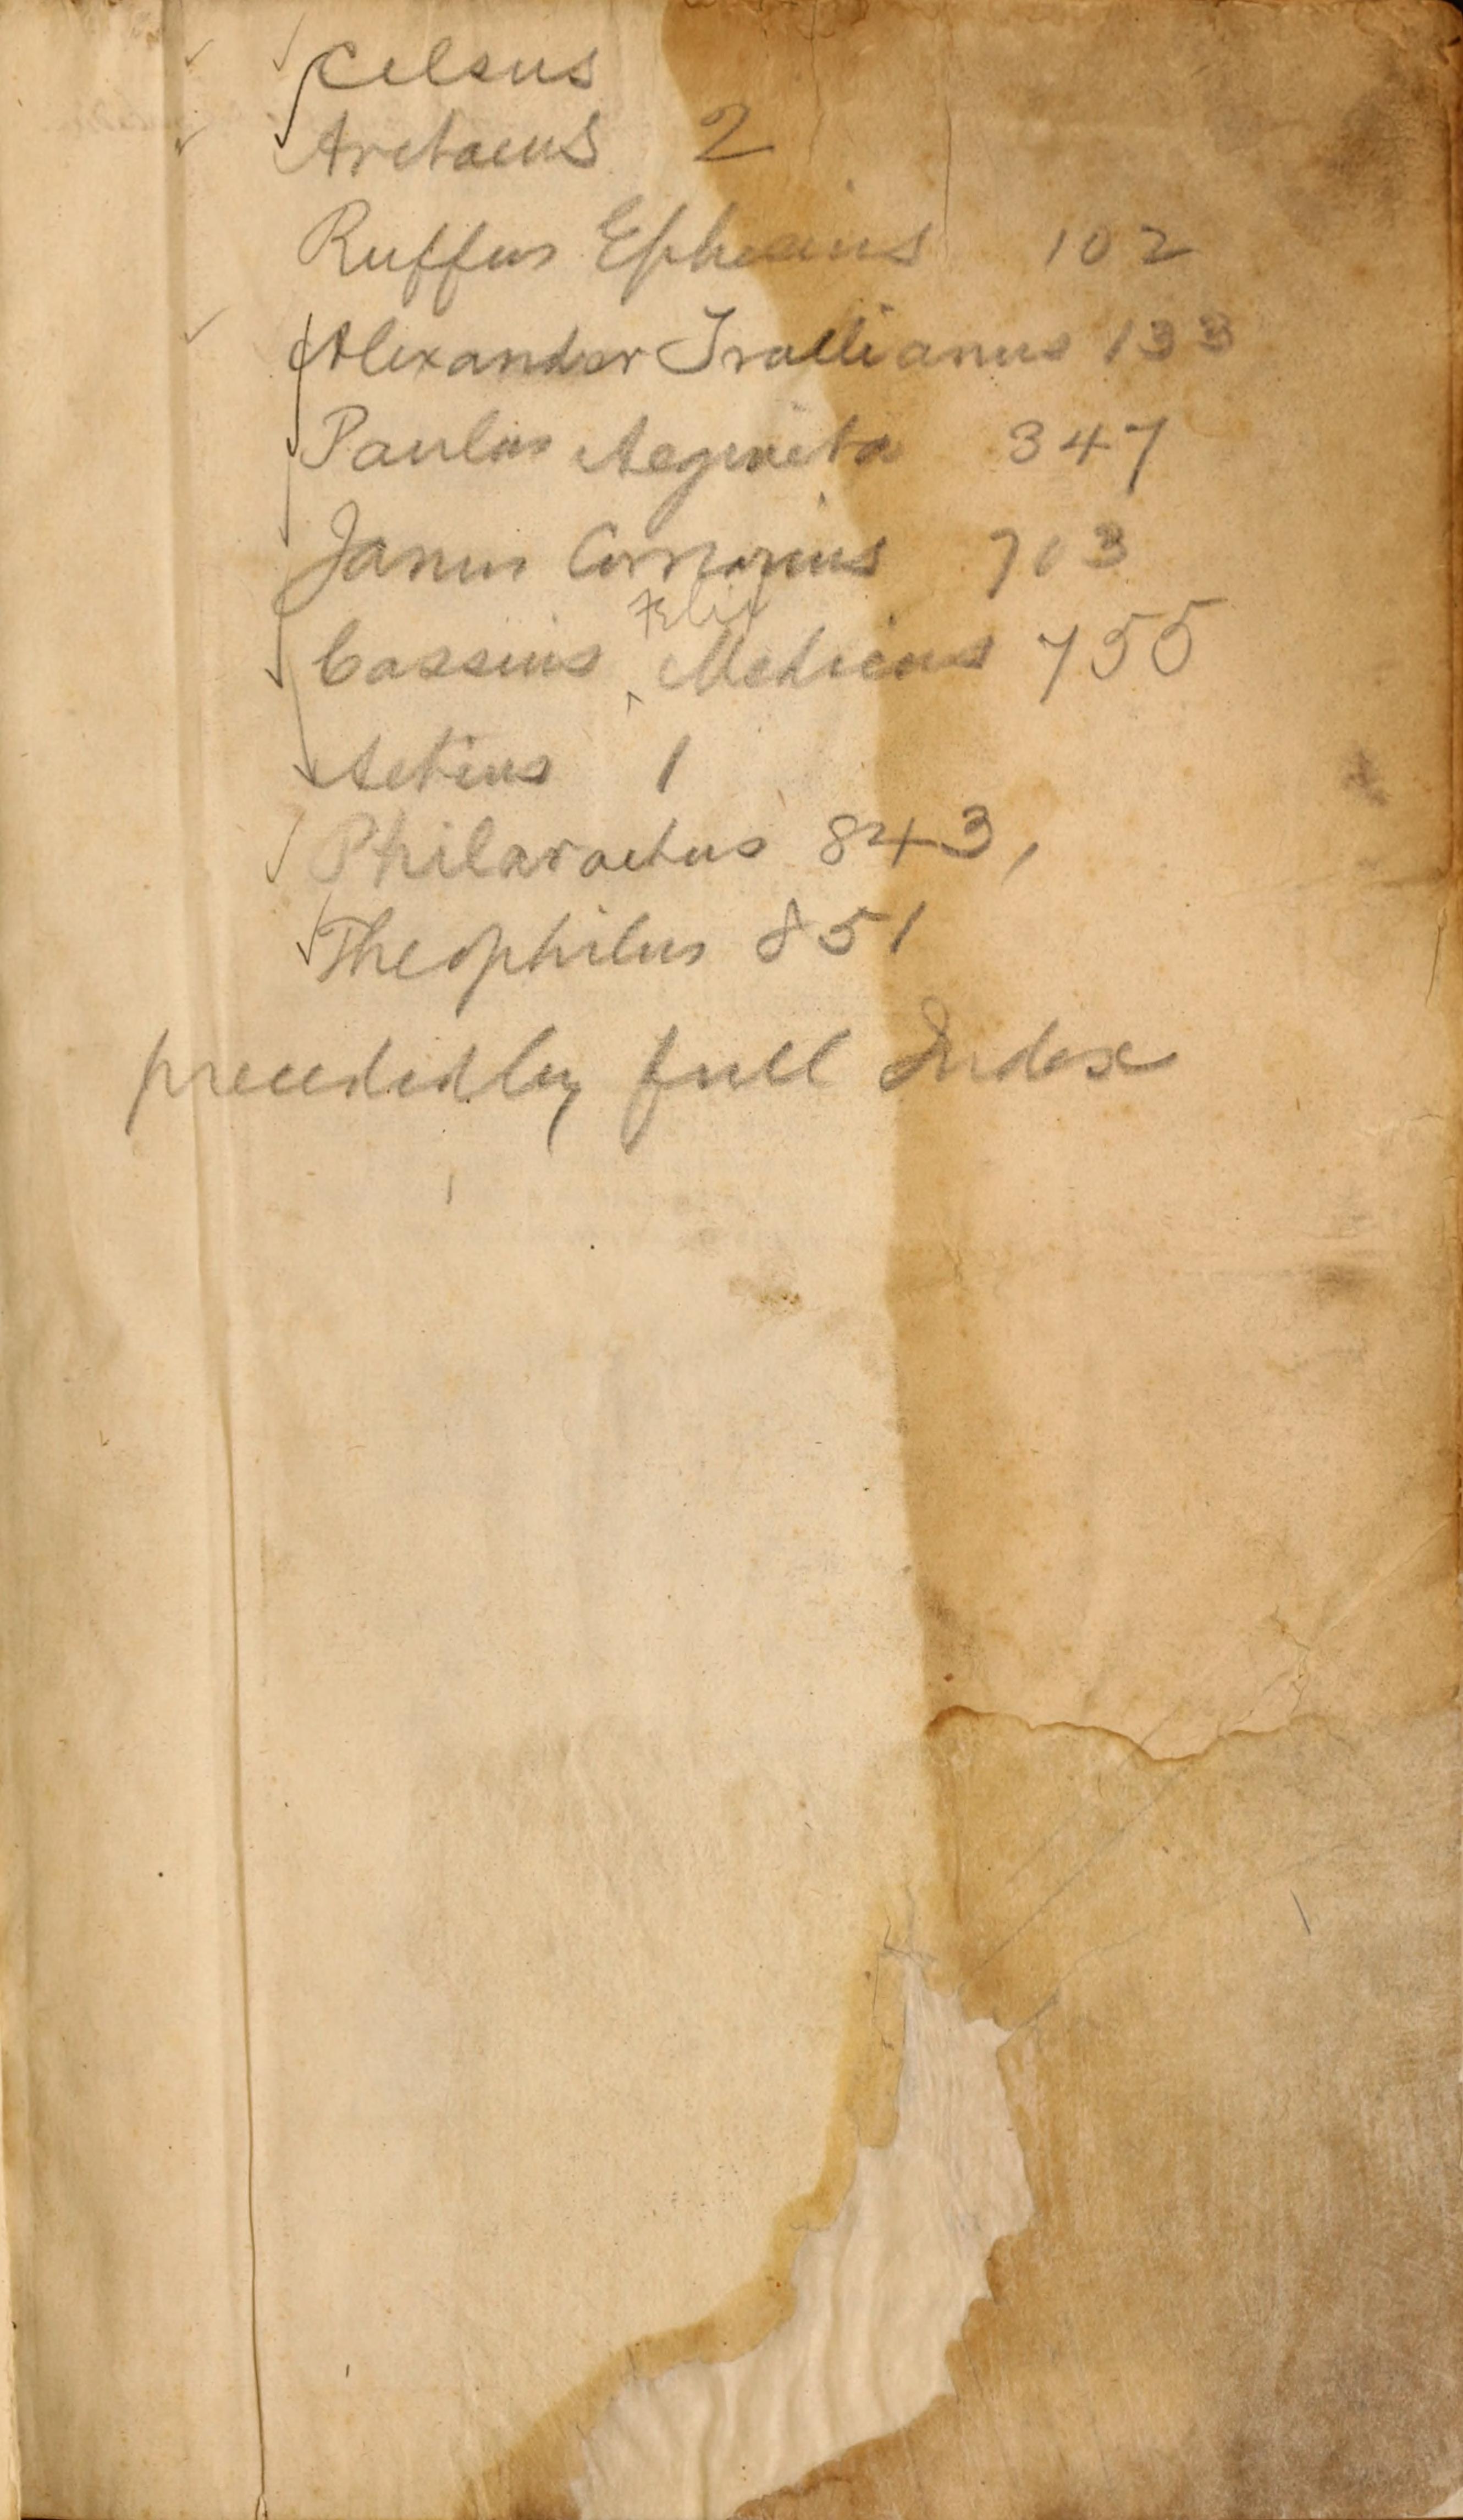 Celsus
Aretaeus 2
Ruffus Ephesius 102
Alexander Trallianus 133
Paulus Aegineta 347
Janus Cornarius 703
Felix
Cassius ‸ Medicus 755
Aetius 1
Philaraetus 843,
Theophilus 851
preceded by full Index